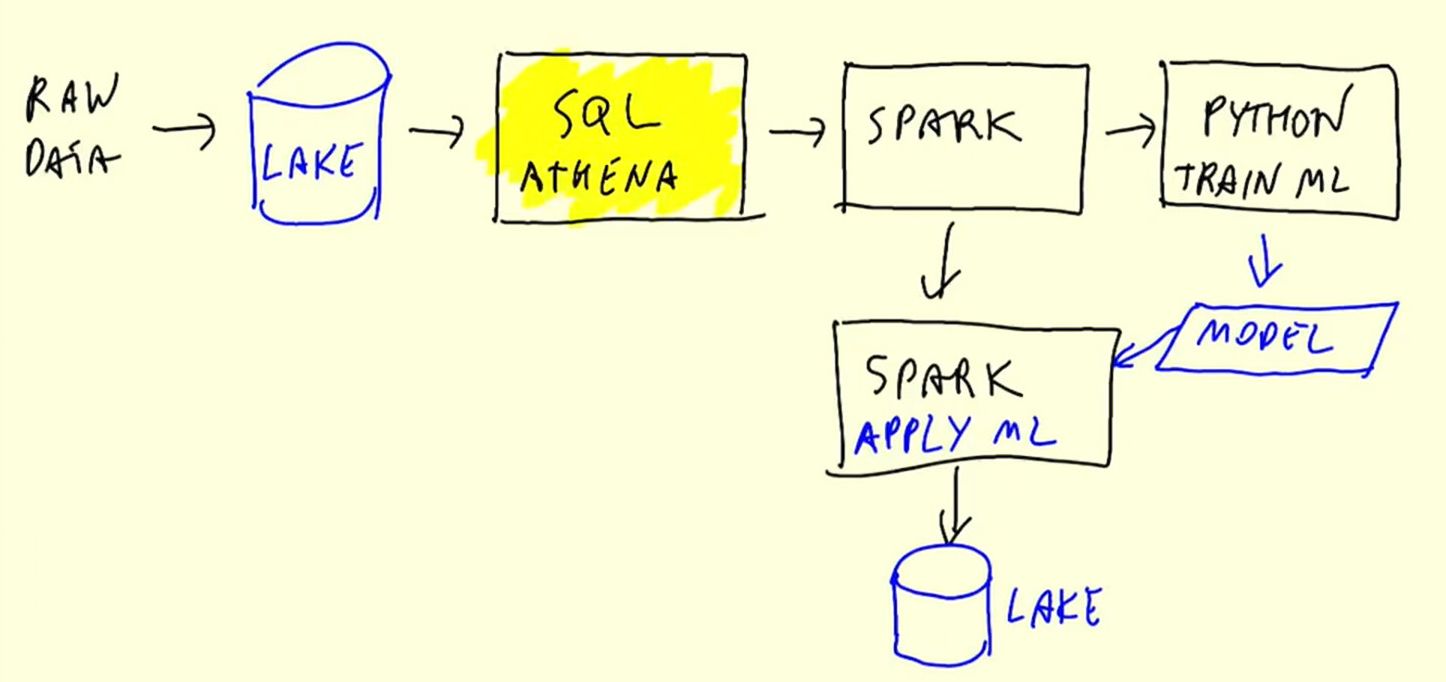 RAW
DATA
LAKE
SQL
ATHENA
SPARK
PYTHON
TRAIN ML
MODEL
SPARK
APPLY ML
LAKE